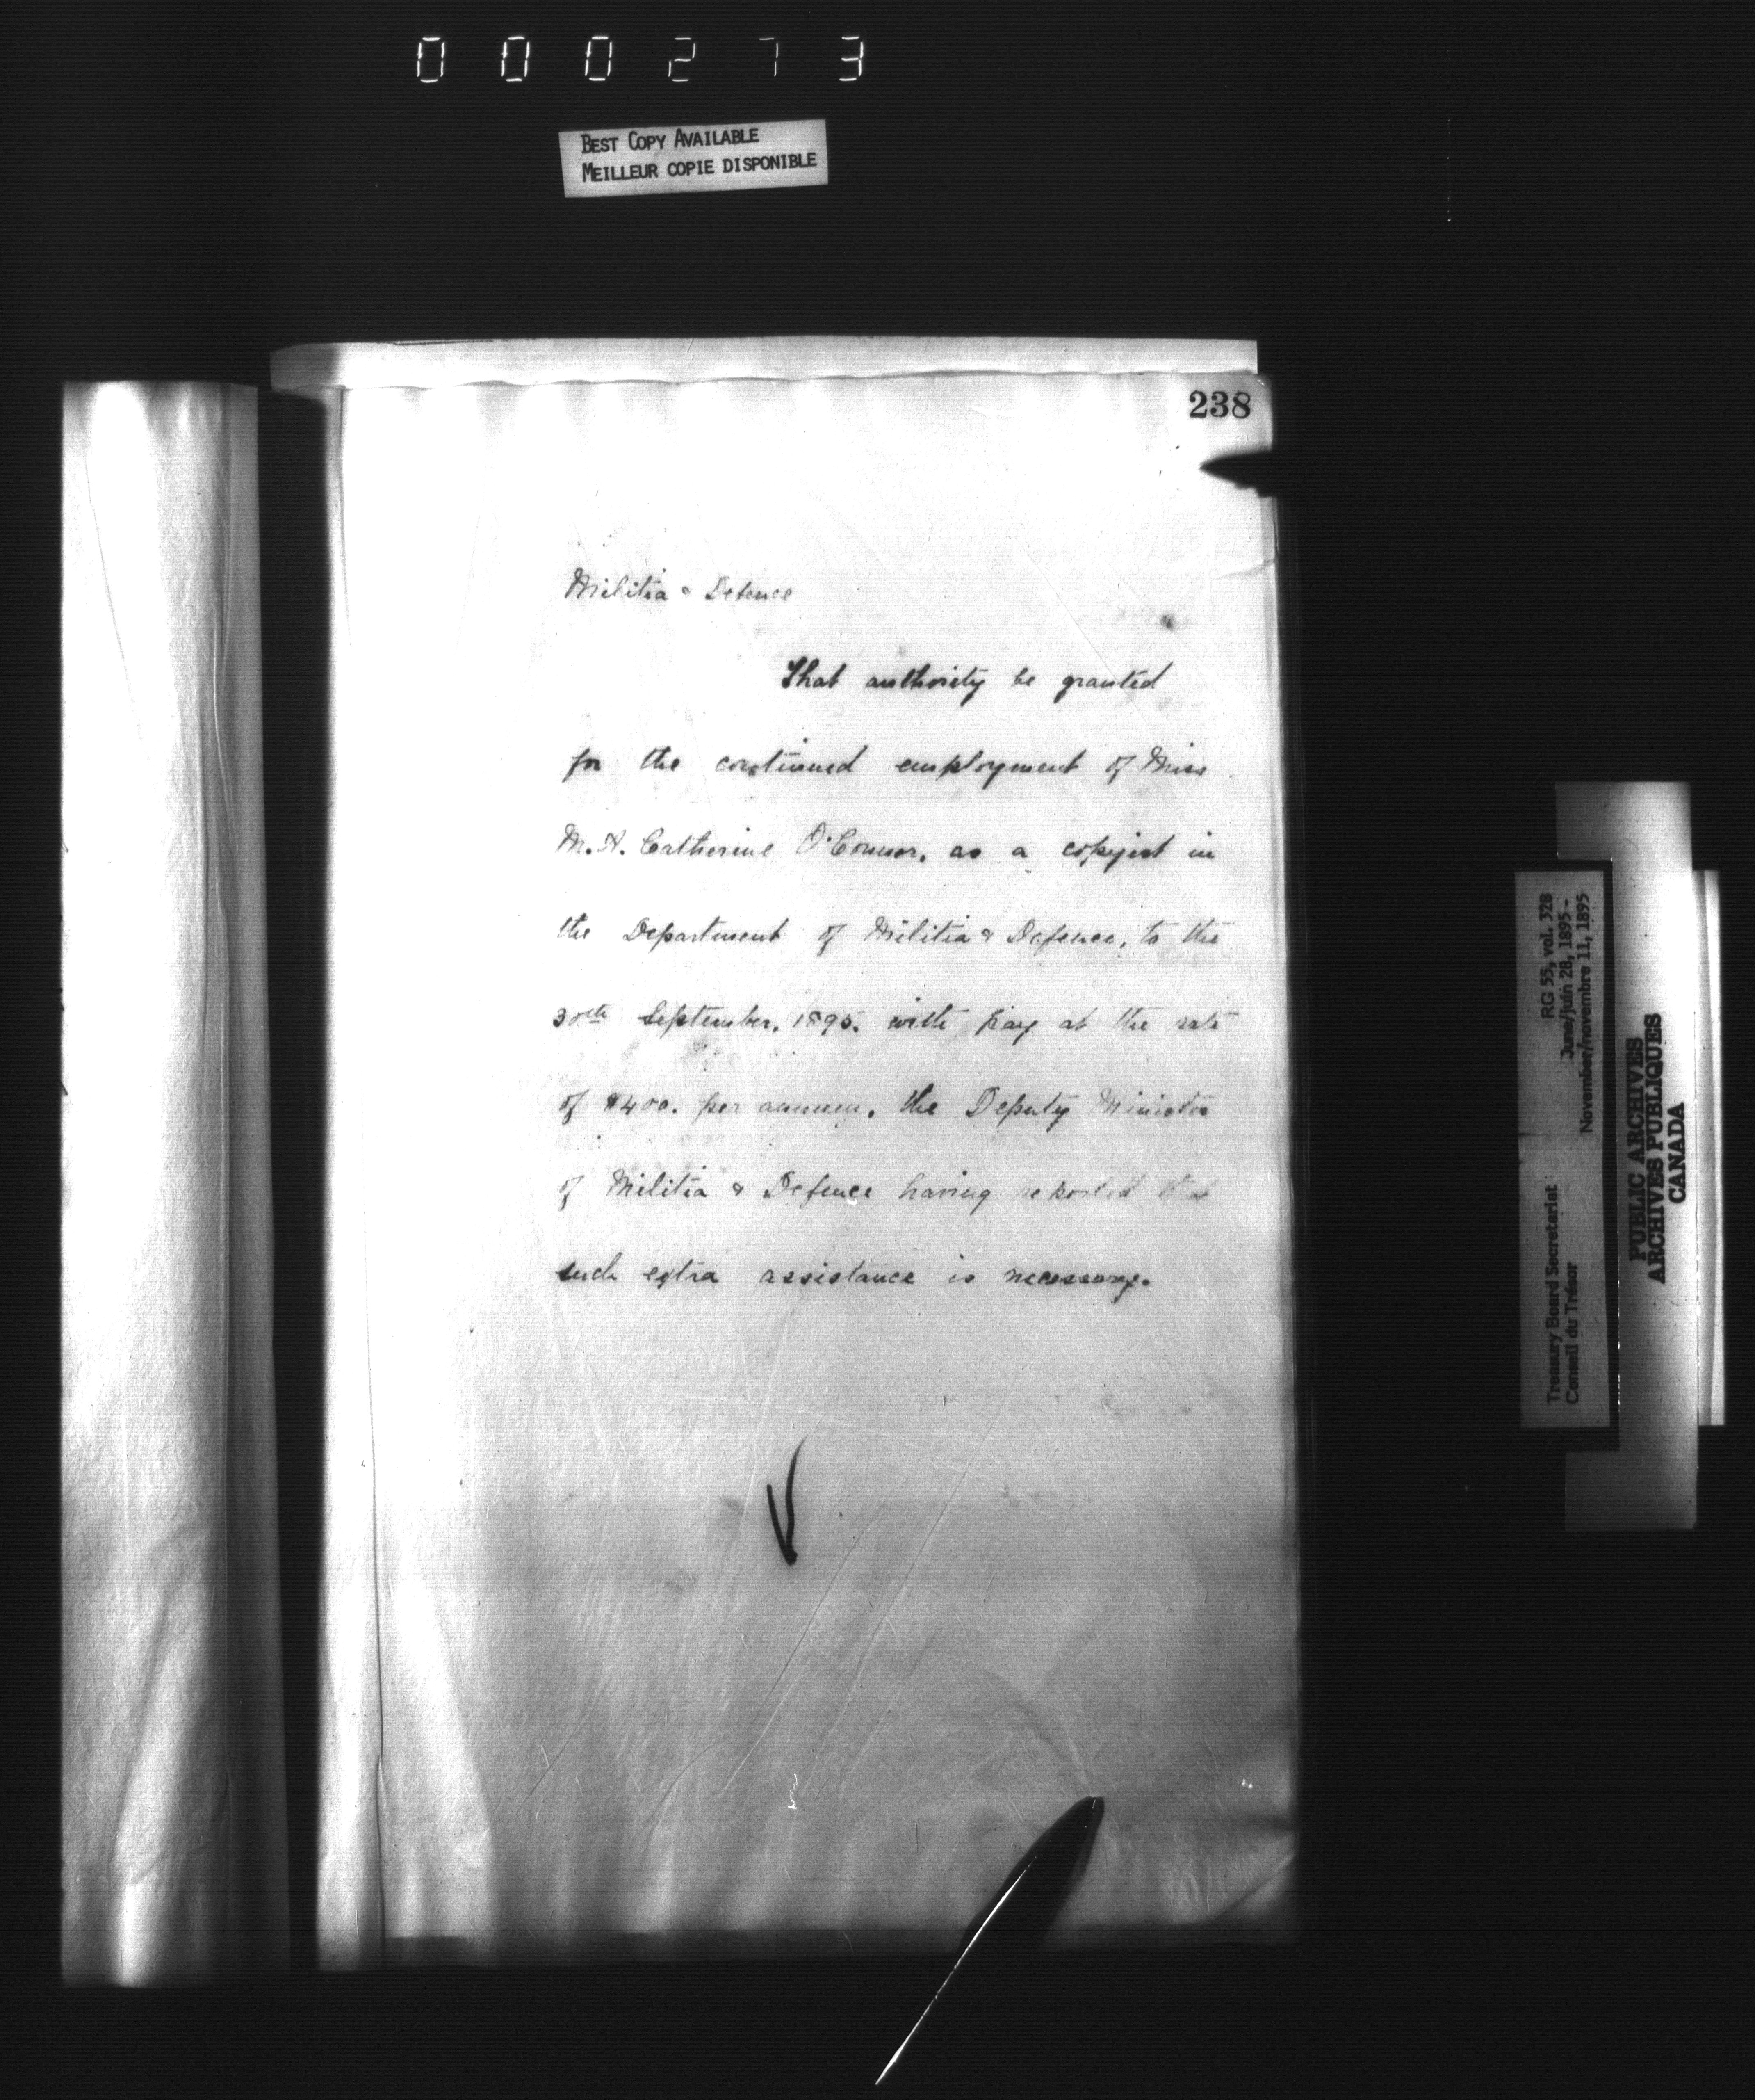 000273
BEST COPY AVAILABLE
MEILLEUR COPIE DISPONIBLE
238
Militia & Defence
That authority be granted
for the continued employment of Miss
M. A. Catherine O'Connor, as a copyist in
the Department of Militia & Defence, to the
30th September, 1895. with pay at the rate
of $400. per annum, the Deputy Minister
of Militia & Defence having reported that
such extra assistance is necessary.
Treasury Board Secretariat RG 55, vol. 328
Conseil du Trésor June/juin 28, 1895 -
November/novembre 11, 1895
PUBLIC ARCHIVES
ARCHIVES PUBLIQUES
CANADA